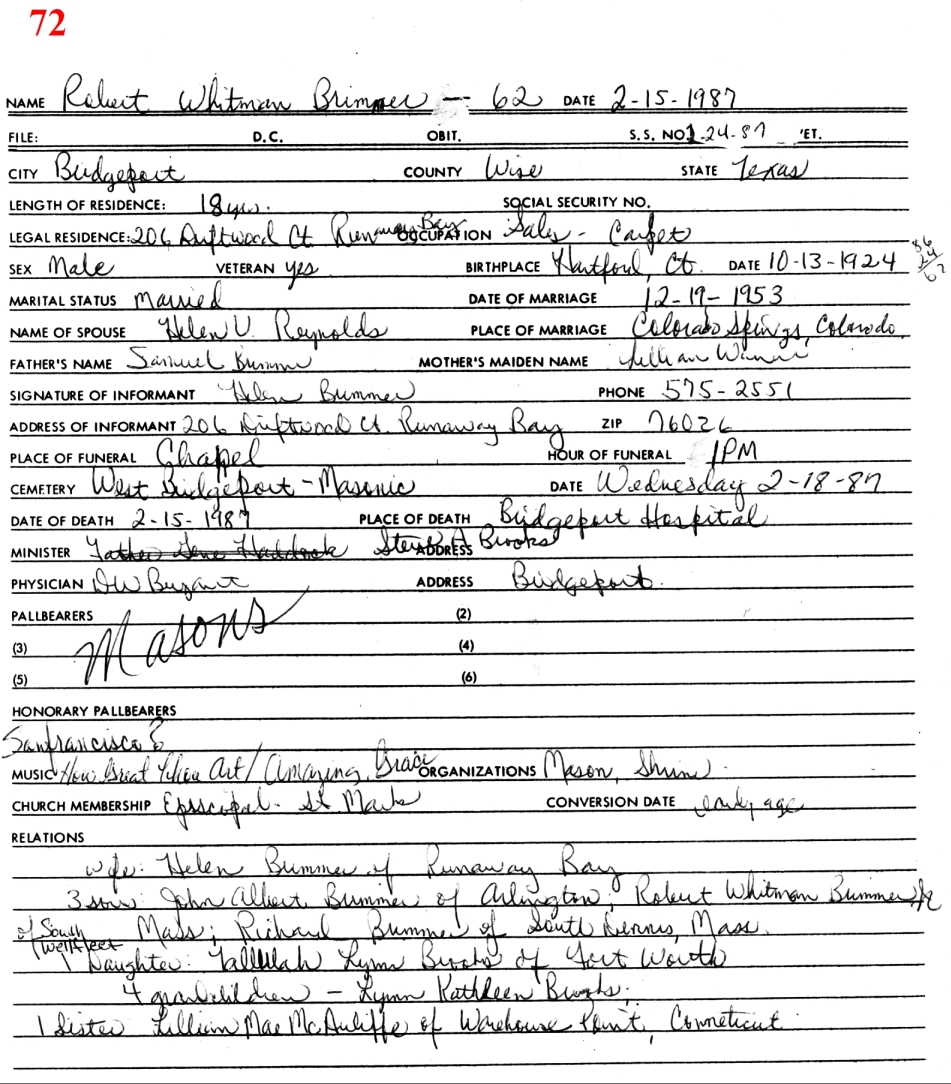 72
NAME Robert Whitman Brimmer — 62 DATE 2-15-1987
FILE: D.C. OBIT. S.S. NO. 1-24-87 'ET.
CITY Bridgeport COUNTY Wise STATE Texas
LENGTH OF RESIDENCE: 18 yrs. SOCIAL SECURITY NO.
LEGAL RESIDENCE: 206 Driftwood Ct. Runaway Bay OCCUPATION Sales - Carpet
SEX Male VETERAN yes BIRTHPLACE Hartford, Ct. DATE 10-13-1924 86 24 62
MARITAL STATUS Married DATE OF MARRIAGE 12-19-1953
NAME OF SPOUSE Helen V. Reynolds PLACE OF MARRIAGE Colorado Springs, Colorado
FATHER'S NAME Samuel Brimmer MOTHER'S MAIDEN NAME Lillian
SIGNATURE OF INFORMANT Helen Brimmer PHONE 575-2551
ADDRESS OF INFORMANT 206 Driftwood Ct. Runaway Bay ZIP 76026
PLACE OF FUNERAL Chapel HOUR OF FUNERAL 1PM
CEMETERY West Bridgeport - Masonic DATE Wednesday 2-18-87
DATE OF DEATH 2-15-1987 PLACE OF DEATH Bridgeport Hospital
MINISTER Father Gene Haddock Steve A Brooks ADDRESS
PHYSICIAN DW Bryant ADDRESS Bridgeport.
PALLBEARERS (2)
(3) Masons (4)
(5) (6)
HONORARY PALLBEARERS
Sanfrancisco
MUSIC How Great Thou Art / Amazing Grace ORGANIZATIONS Mason, Shrine
CHURCH MEMBERSHIP Episcopal - St Marks CONVERSION DATE early age
RELATIONS
wife: Helen Brimmer of Runaway Bay
3 sons: John Albert Brimmer of Arlington; Robert Whitman Brimmer, Jr
of South Wellfleet Mass; Richard Brimmer of South Dennis, Mass.
1 Daughter: Tallulah Lynn Brooks of Fort Worth
4 grandchildren - Lynn Kathleen Brooks.
1 Sister Lillian Mae McAuliffe of Warehouse Point, Conneticut